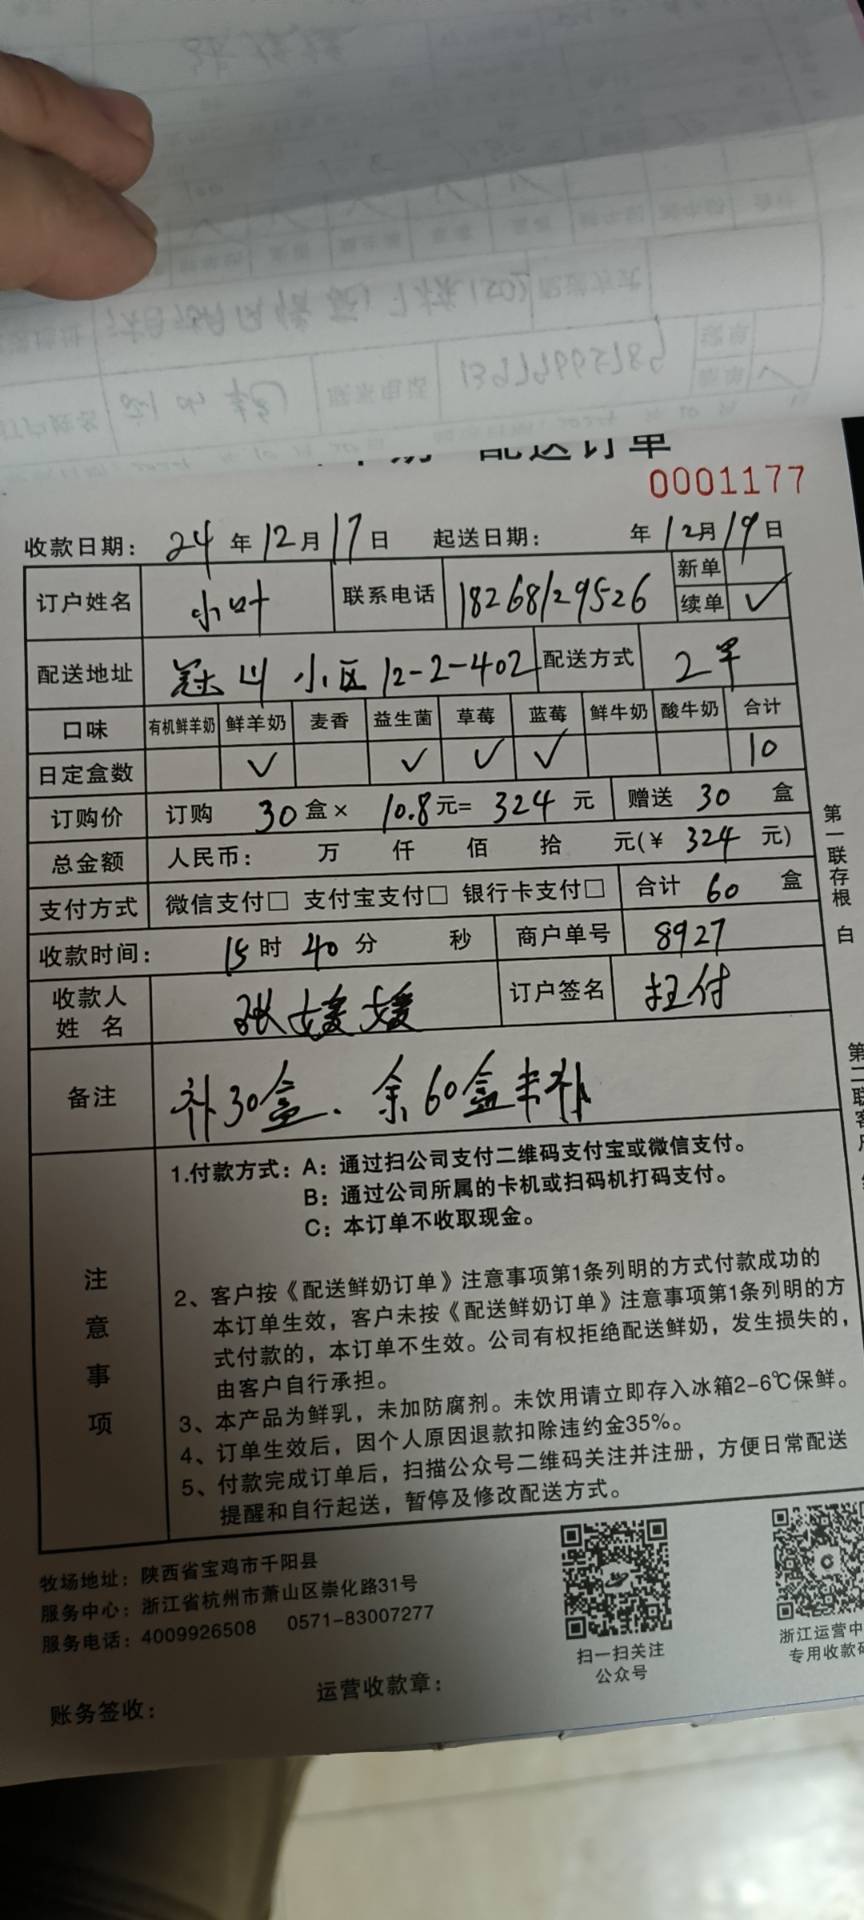 配送订单
0001177
收款日期： 24 年 12 月 17 日 起送日期： 年 12 月 19 日
订户姓名 小叶 联系电话 18268129526 新单
续单 ✓
配送地址 冠山小区12-2-402 配送方式 2早
口味 有机鲜羊奶 鲜羊奶 麦香 益生菌 草莓 蓝莓 鲜牛奶 酸牛奶 合计
日定盒数 ✓ ✓ ✓ ✓ 10
订购价 订购 30 盒× 10.8 元= 324 元 赠送 30 盒
总金额 人民币： 万 仟 佰 拾 元(¥ 324 元)
支付方式 微信支付□ 支付宝支付□ 银行卡支付□ 合计 60 盒
收款时间： 15 时 40 分 秒 商户单号 8927
收款人姓名 张媛媛 订户签名 扫付
备注 补30盒、余60盒未补
注意事项
1.付款方式：A：通过扫公司支付二维码支付宝或微信支付。
B：通过公司所属的卡机或扫码机打码支付。
C：本订单不收取现金。
2、客户按《配送鲜奶订单》注意事项第1条列明的方式付款成功的
本订单生效，客户未按《配送鲜奶订单》注意事项第1条列明的方
式付款的，本订单不生效。公司有权拒绝配送鲜奶，发生损失的，
由客户自行承担。
3、本产品为鲜乳，未加防腐剂。未饮用请立即存入冰箱2-6℃保鲜。
4、订单生效后，因个人原因退款扣除违约金35%。
5、付款完成订单后，扫描公众号二维码关注并注册，方便日常配送
提醒和自行起送，暂停及修改配送方式。
第一联存根 白
第二联客户
牧场地址：陕西省宝鸡市千阳县
服务中心：浙江省杭州市萧山区崇化路31号
服务电话：4009926508 0571-83007277
扫一扫关注
公众号
浙江运营中
专用收款码
账务签收： 运营收款章：